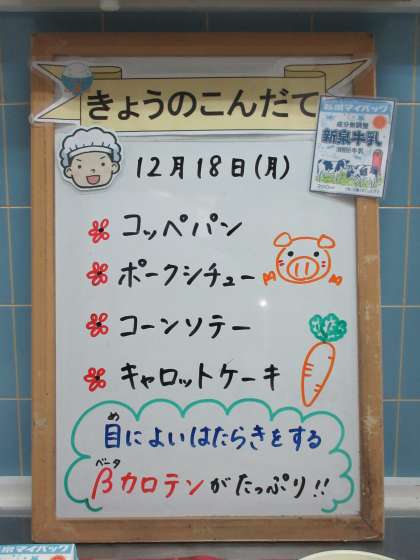 きょうのこんだて
成分無調整
新泉牛乳
12月18日(月)
コッペパン
ポークシチュー
コーンソテー
キャロットケーキ
目によいはたらきをする
め
βカロテンがたっぷり!!
ベータ